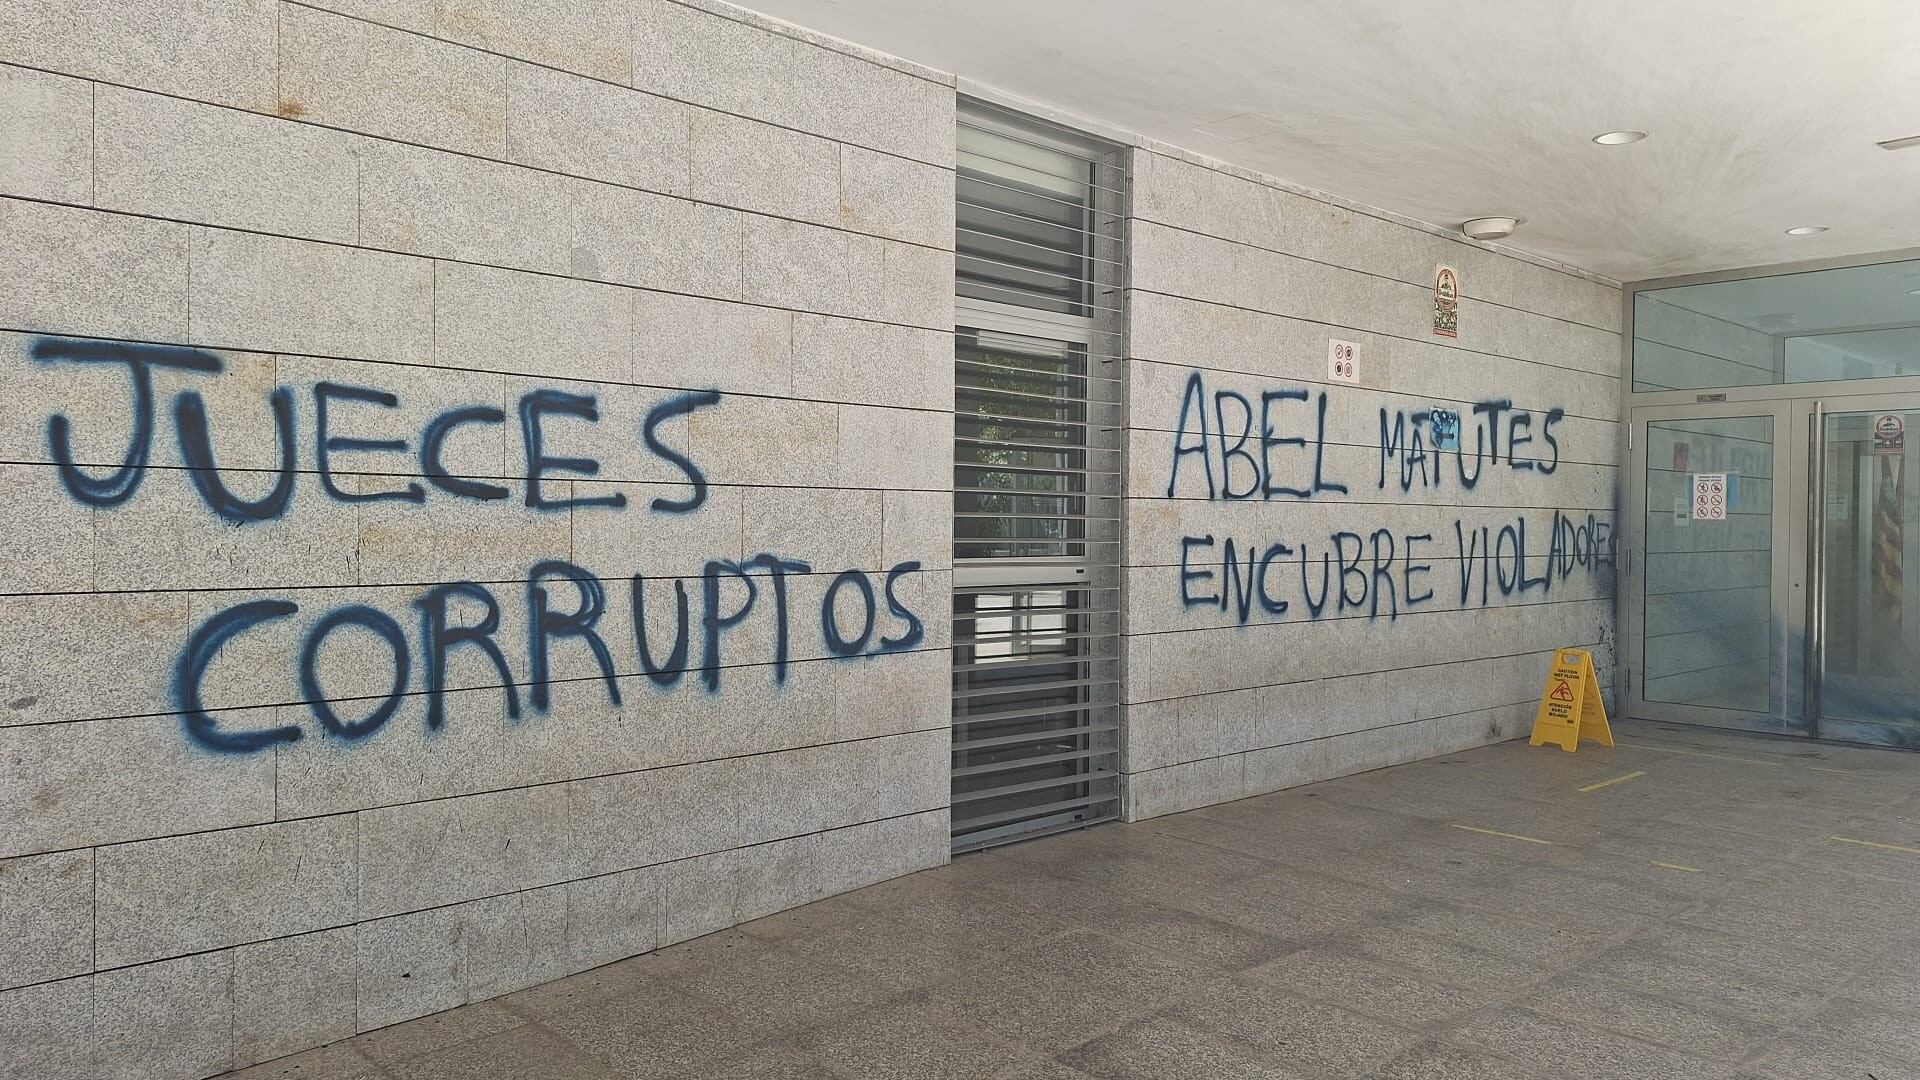 JUECES
CORRUPTOS
ABEL MATUTES
ENCUBRE VIOLADORES
CAUTION
WET FLOOR
ATENCIÓN
SUELO
MOJADO